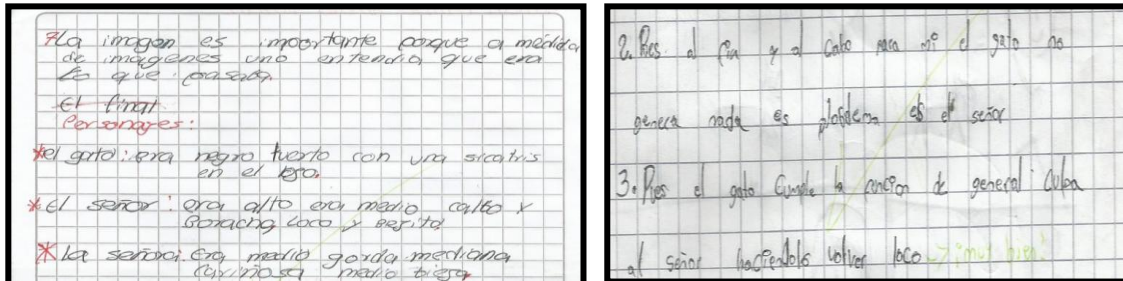 7La imagen es importante porque a medida
de imagenes uno entendia que era
lo que pasada.
El final
Personages:
*el gato: era negro tuerto con una sicatris
en el
*El señor: era alto era medio calbo y
Boracho, Loco y
*La señora: Era medio gorda mediana
cariñosa medio
2. Res al fin y al cabo para mi el gato no
genera nada es plobdema es el señor
3. Res el gato Cumple la funcion de general Culpa
al señor haciendolo volver loco -> ¡muy bien!